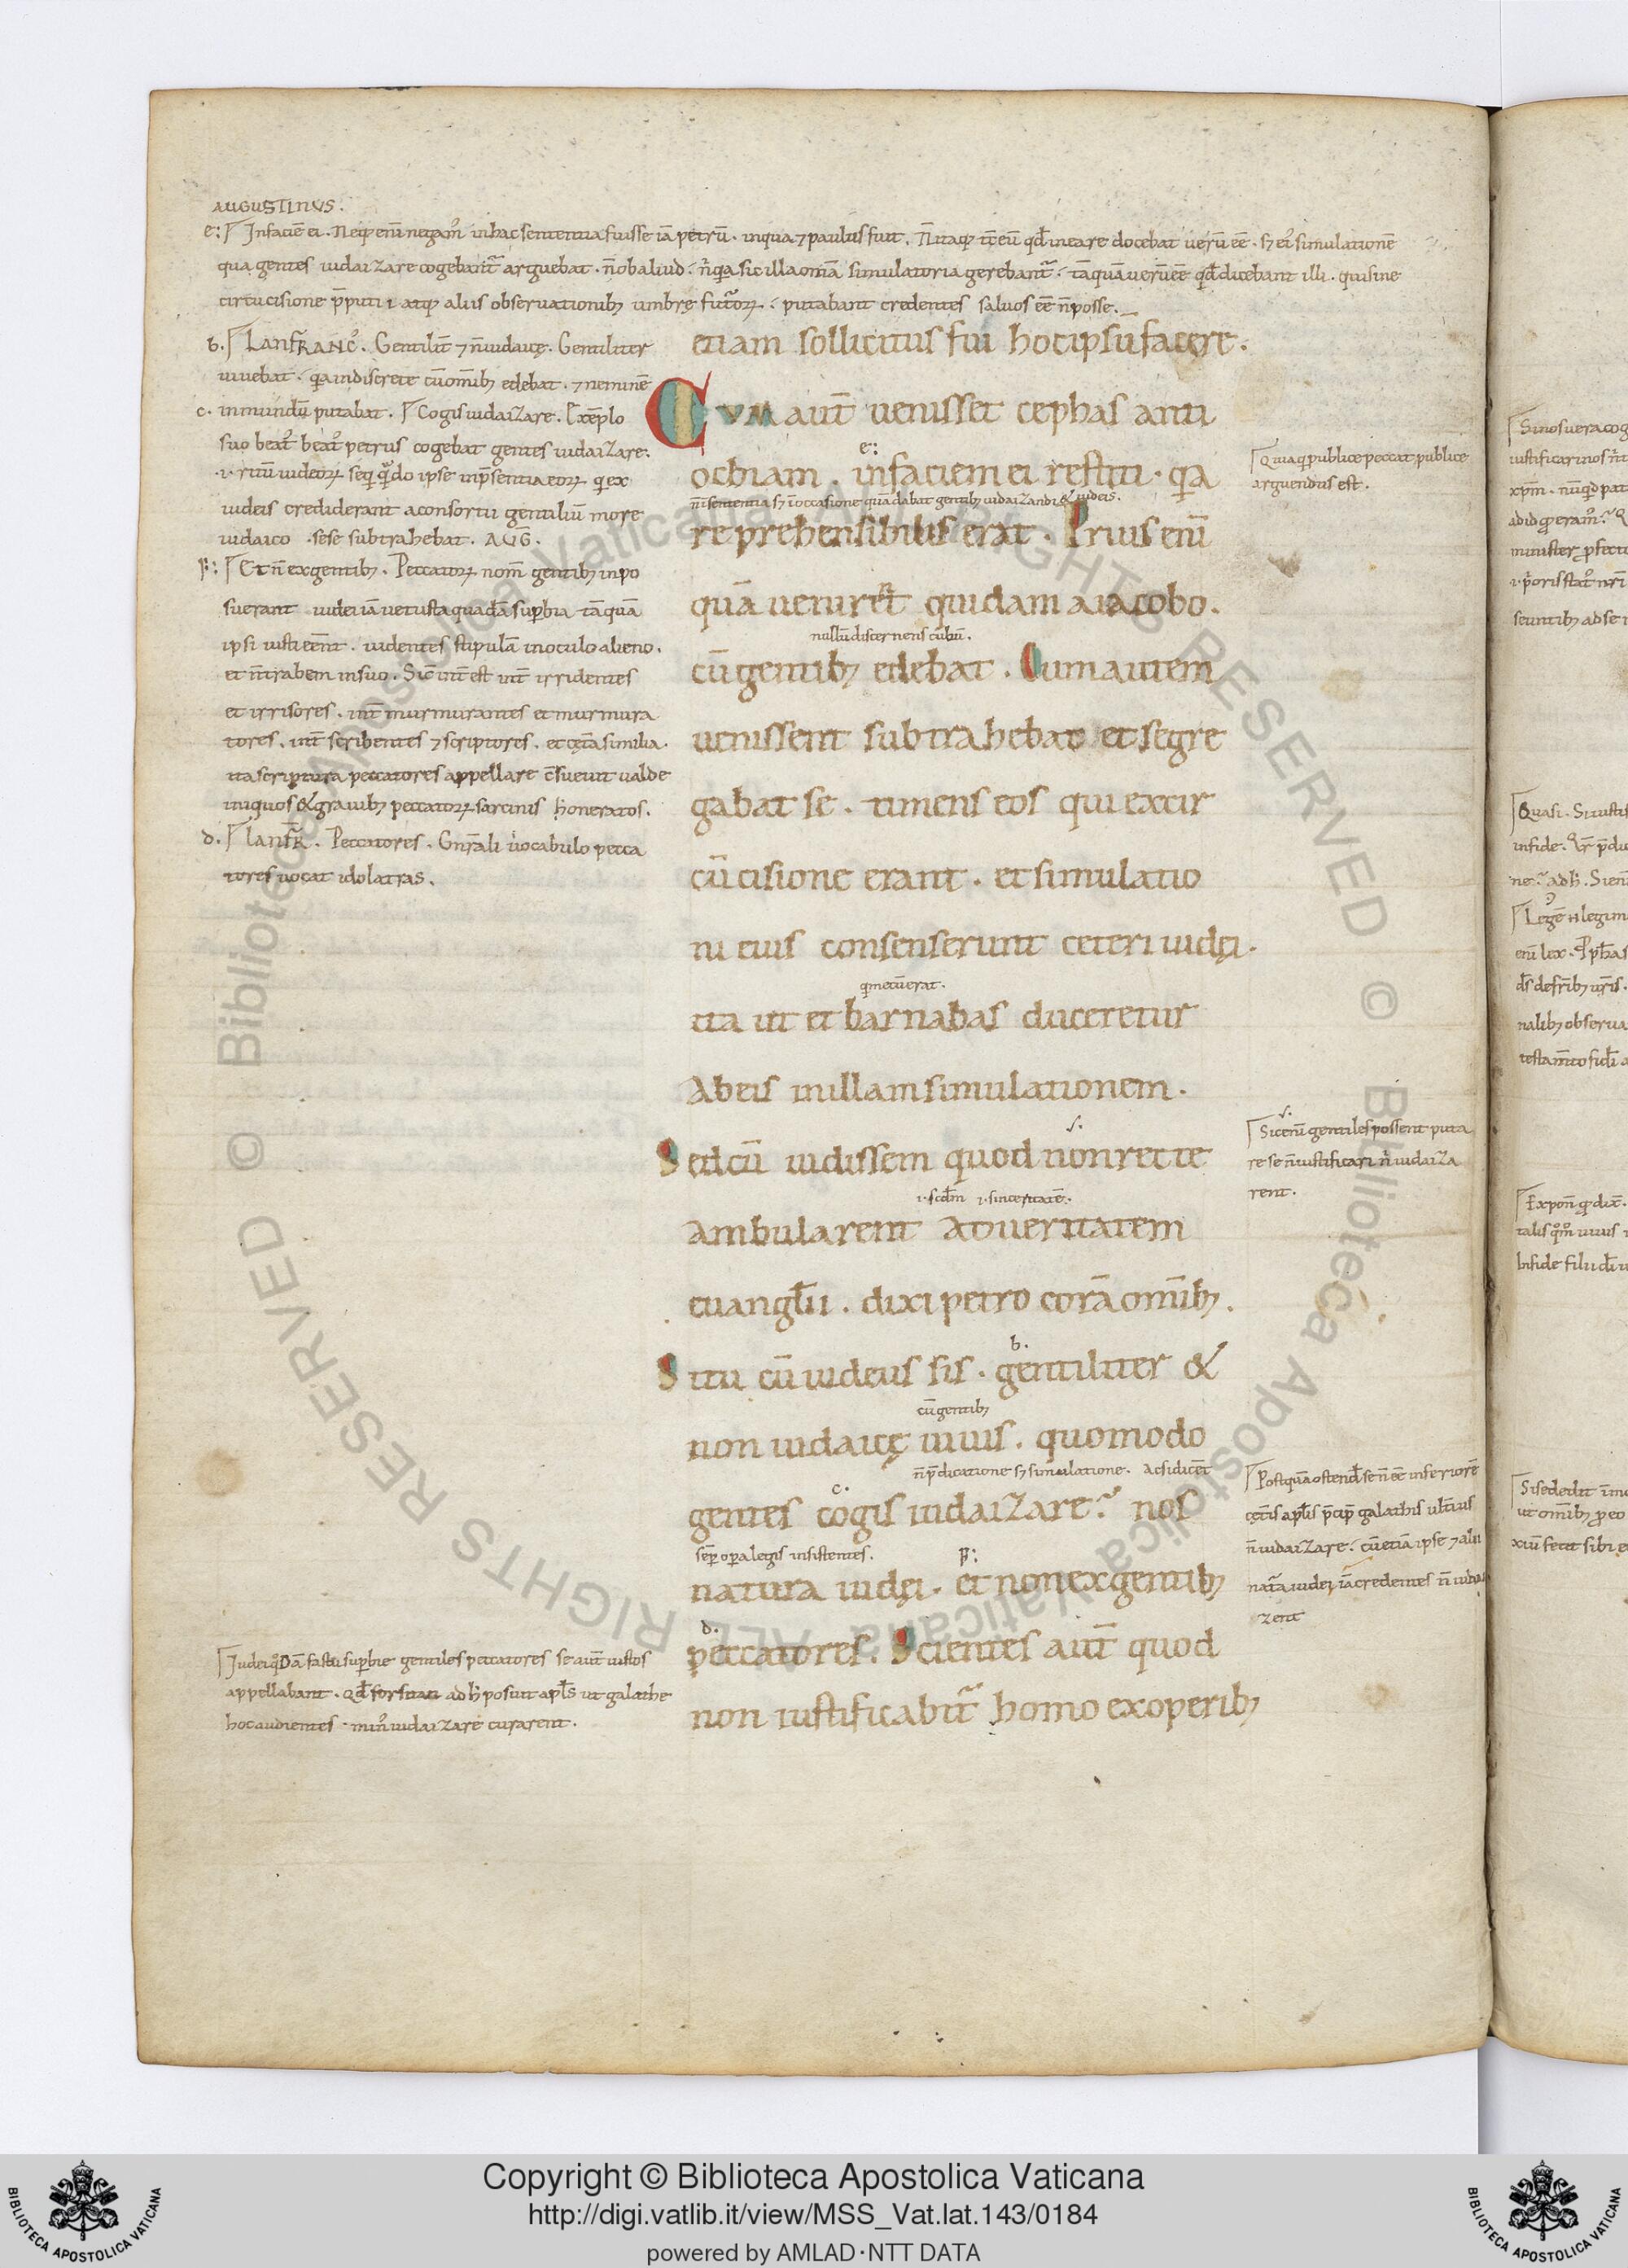 AUGUSTINUS.
e: Infaciē ei. Neq; enī negamꝰ inhac sententia fuisse iā petrū. inqua ⁊ paulus fuit. Nōitaq; tc̄ eū qđ ineare docebat uerū eē. sꝫ eiꝰ simulationē
qua gentes iudaizare cogebant̄ arguebat. n̄ obaliud. n̄ qa sic illa om̄ia simulatoria gerebant̄. tā quā uerū eē qđ dicebant illi. qui sine
circūcisione p̄putii atq; aliis obseruationibꝫ umbrę futuroꝝ. putabant credentes saluos eē n̄ posse.
b. LanfRANCꝰ. Gentilit̄ ⁊ n̄ iudaicę. Gentiliter
uiuebat. qa indiscrete cū omībꝫ edebat. ⁊ neminē
c. inmundū putabat. Cogis iudaizare. Exēplo
suo beatꝰ beatꝰ petrus cogebat gentes iudaizare.
.i. ritū iudeoꝝ seq̄ qn̄do ipse inp̄sentia eoꝝ q̄ ex
iudeis crediderant a consortii gentiliū more
iudaico sese subtrahebat. AUḠ.
F: Et n̄ exgentibꝫ. Peccatoꝝ nom̄ gentibꝫ inpo
suerant iudei iā uetusta quadā sup̄bia tā quā
ipsi iusti eēnt. uidentes stipulā inoculo alieno.
et n̄ trabem insuo. Sic̄ int̄est int̄ irridentes
et irrisores. int̄ murmurantes et murmura
tores. int̄ scribentes ⁊ scriptores. et cęt̄a similia.
ita scriptura peccatores appellare c̄sueuit ualde
iniquos & grauibꝫ peccatoꝝ sarcinis honeratos.
d. lanfR̄. Peccatores. Gn̄rali uocabulo pecca
tores uocat idolatras.
Iudei qꝰdā fastu sup̄bie gentiles peccatores se aut̄ iustos
appellabant. qđ forsitan ad hꝰ posuit apl̄s ut galathe
hoc audientes. minꝰ iudaizare curarent.
etiam sollicitus fui hoc ipsū facere.
CUM aut̄ uenisset cephas anti
e:
ochiam. infaciem ei restiti. qa
n̄ insententia sꝫ ī occasione quā dabat gentibꝫ iudaizandi & iudeis.
reprehensibilis erat. Prius enī
quā ueniret quidam aiacobo.
nullū discernens cibū.
cū gentibꝫ edebat. Cum autem
uenissent subtrahebat et segre
gabat se. timens eos qui excir
cūcisione erant. et simulatio
ni eius consenserunt ceteri iudęi.
q̄ mecū erat.
ita ut et barnabas duceretur
Abeis inillam simulationem.
s.
Sed cū uidissem quod non recte
.i. scđm .i. sinceritatē.
Ambularent adueritatem
euangl̄ii. dixi petro corā omībꝫ.
b.
Si tu cū iudeus sis. gentiliter &
cū gentibꝫ
non iudaicę uiuis. quomodo
n̄ p̄dicatione sꝫ simulatione. Ac si dicēt
c.
gentes cogis iudaizare? nos
semp̄ opera legis insistentes.
F:
natura iudęi. et non exgentibꝫ
d.
peccatores. Scientes aut̄ quod
non iustificabit̄ homo exoperibꝫ
Quia q̄ publice peccat publice
arguendus est.
s.
Sic enī gentiles possent puta
re se n̄ iustificari n̄ iudaiza
rent.
Postquā ostend̄ se n̄ eē inferiorē
cęt̄is apl̄is p̄cip̄ galathis ult̄ius
n̄ iudaizare. cū etiā ipse ⁊ alii
nat̄a iudei iā credentes n̄ iudai
zent
Copyright © Biblioteca Apostolica Vaticana
http://digi.vatlib.it/view/MSS_Vat.lat.143/0184
powered by AMLAD·NTT DATA
BIBLIOTECA APOSTOLICA VATICANA
BIBLIOTECA APOSTOLICA VATICANA